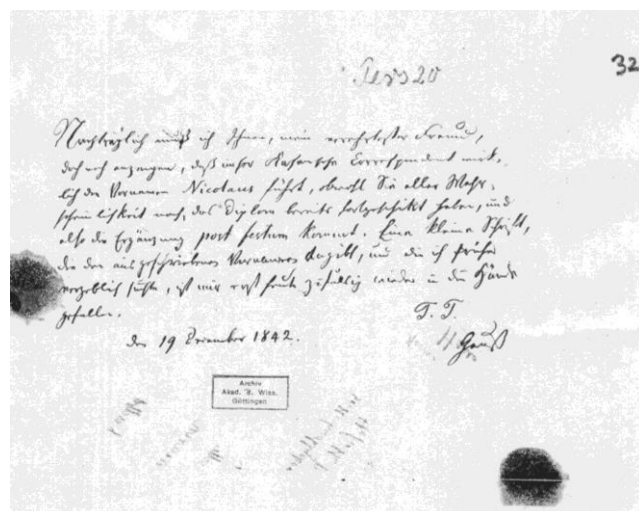 Pers 20
32
Nachträglich muß ich Ihnen, mein verehrtester Freund,
doch noch anzeigen, daß unser Kasansche Correspondent wirk-
lich den Vornamen Nicolaus führt, obwohl Sie aller Wahr-
scheinlichkeit nach, das Diplom bereits fortgeschikt haben, und
also die Ergänzung post festum kommt. Eine kleine Schrift,
die den ausgeschriebenen Vornamen angibt, und die ich früher
vergeblich suchte, ist mir erst heute zufällig wieder in die Hände
gefallen.
T. T.
den 19 December 1842.
Gauß
Archiv
Akad. d. Wiss.
Göttingen